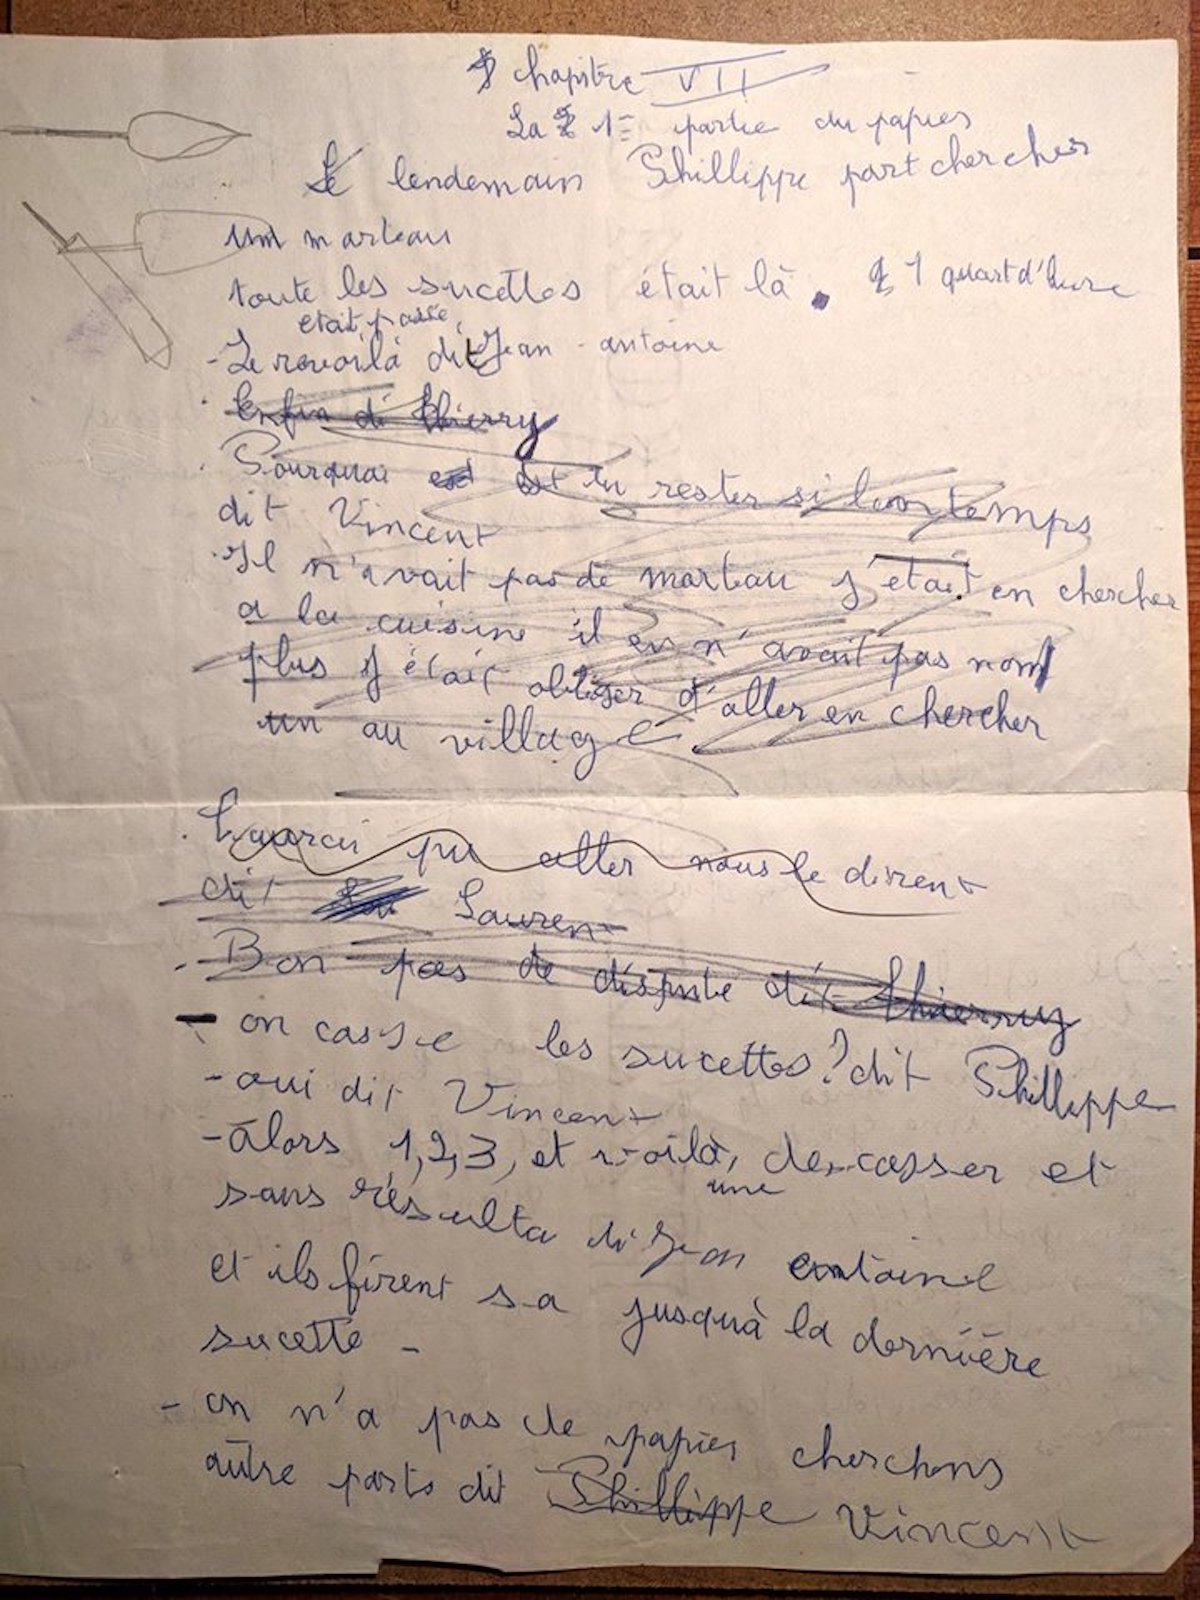 chapitre VII
La 1 partie du papies
Le lendemain Phillippe part chercher
un marteau
toute les sucettes était là. 1 quart d'heure
etait passé,
- Le revoilà dit Jean-antoine
Enfin di thierry
Pourquoi est tu rester si lontemps
dit Vincent
Il n'avait pas de marteau j'etait en chercher
a la cuisine il en n'avait pas non
plus j'était obliger d'aller en chercher
un au village.
pu aller nous le dirent
dit Laurent
- Bon pas de dispute dit thierry
- on casse les sucettes? dit Phillippe
- oui dit Vincent
- alors 1,2,3, et voilà, une de casser et
sans résulta di Jean antoine
et ils firent sa jusquà la dernière
sucette -
- on n'a pas de papies cherchons
autre parts dit Phillippe Vincent